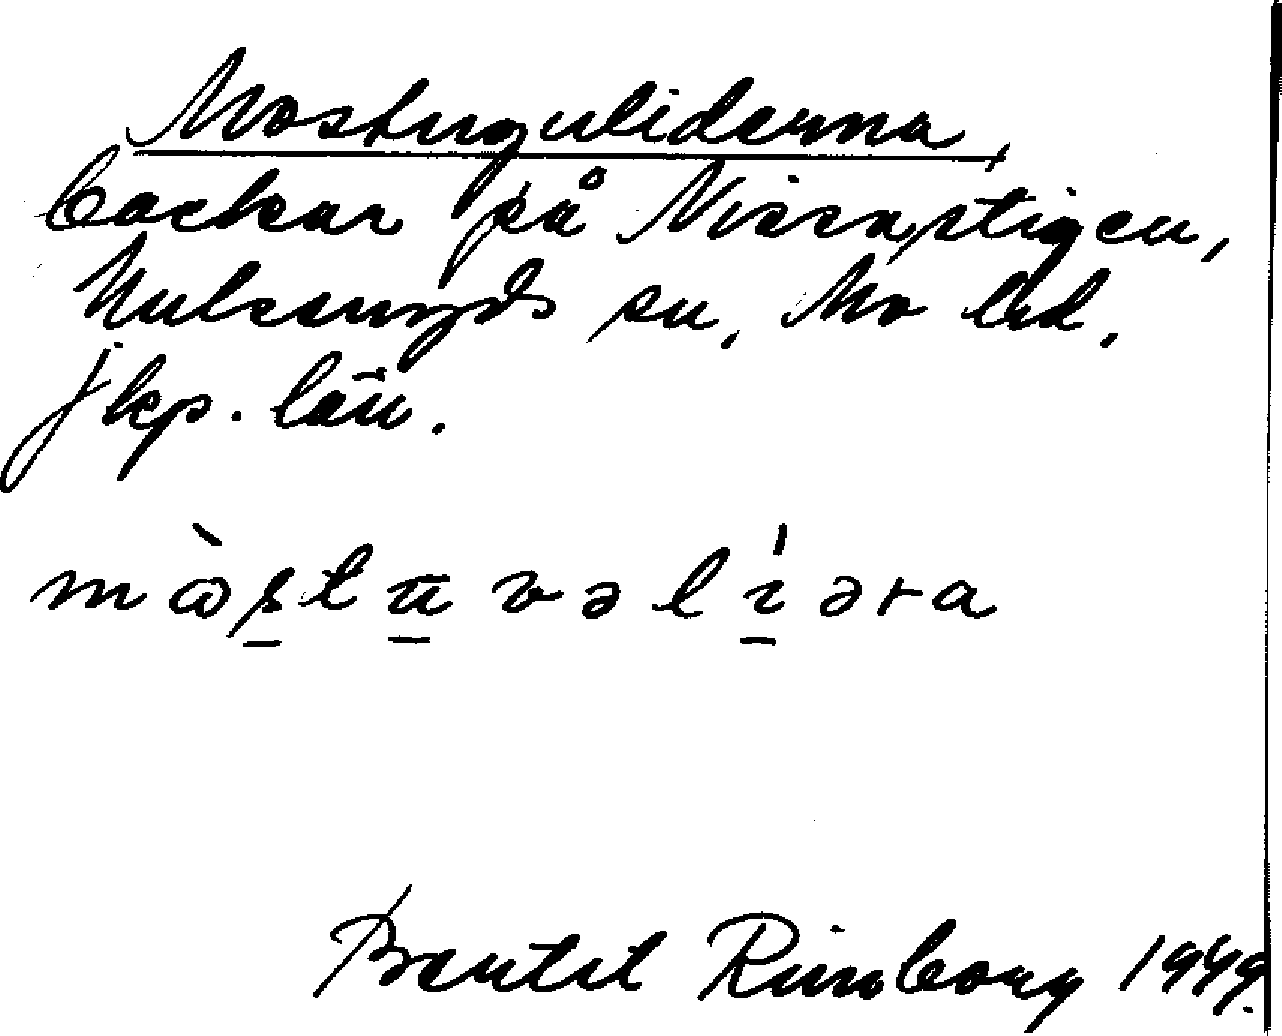 Mostuguliderna,
backar på Nissastigen,
Hulseryds sn, Mo hd,
Jkp. län.
mɷ̀s̱tu̱̅vəlı̱́əra
Bertil Rimborg 1949.